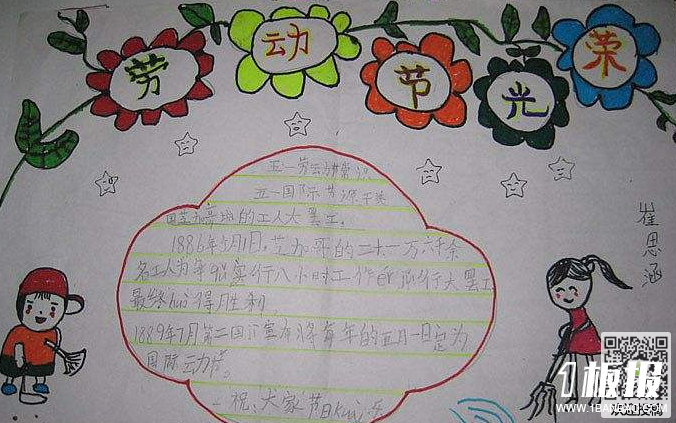 劳动节光荣
五一劳动节常识
五一国际节源于美
国芝加哥城的工人大罢工,
1886年5月1日,芝加哥的二十一万六千余
名工人为争取实行八小时工作制而举行大罢工
最终huò得胜利,
1889年7月第二国际宣布将每年的五月一日定为
国际动节。
祝:大家节日kuài乐
崔思涵
1板报
WWW.1BANBAO.COM